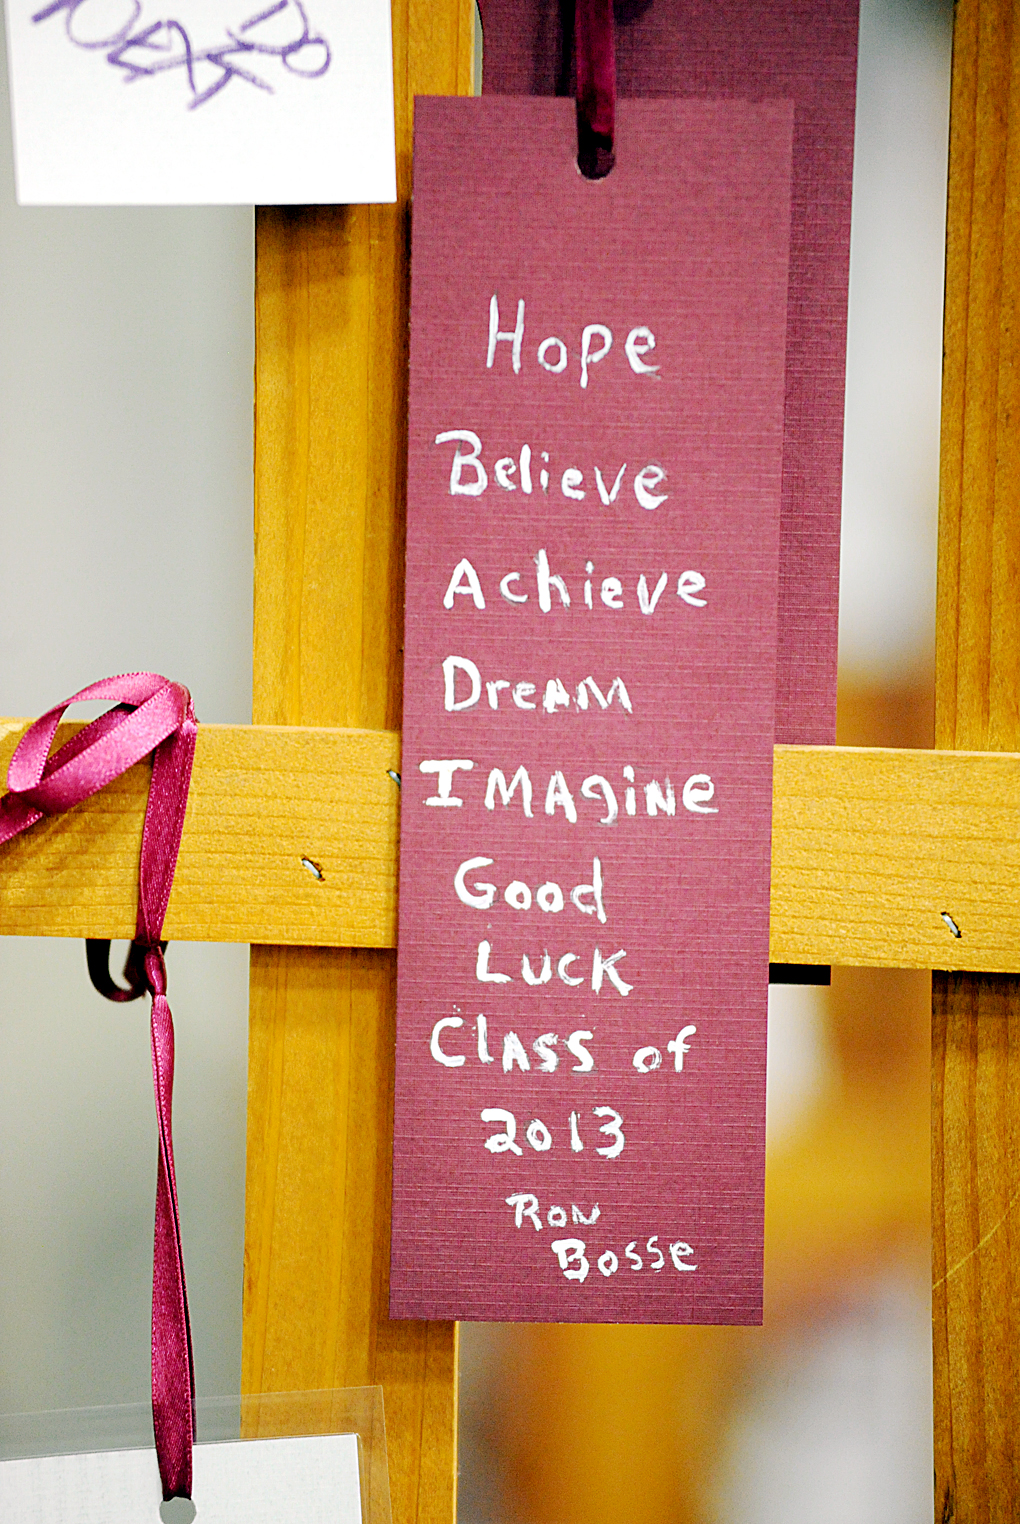 Do
Hope
Believe
Achieve
DreAM
IMAgiNe
Good
Luck
ClAss of
2013
RoN
Bosse